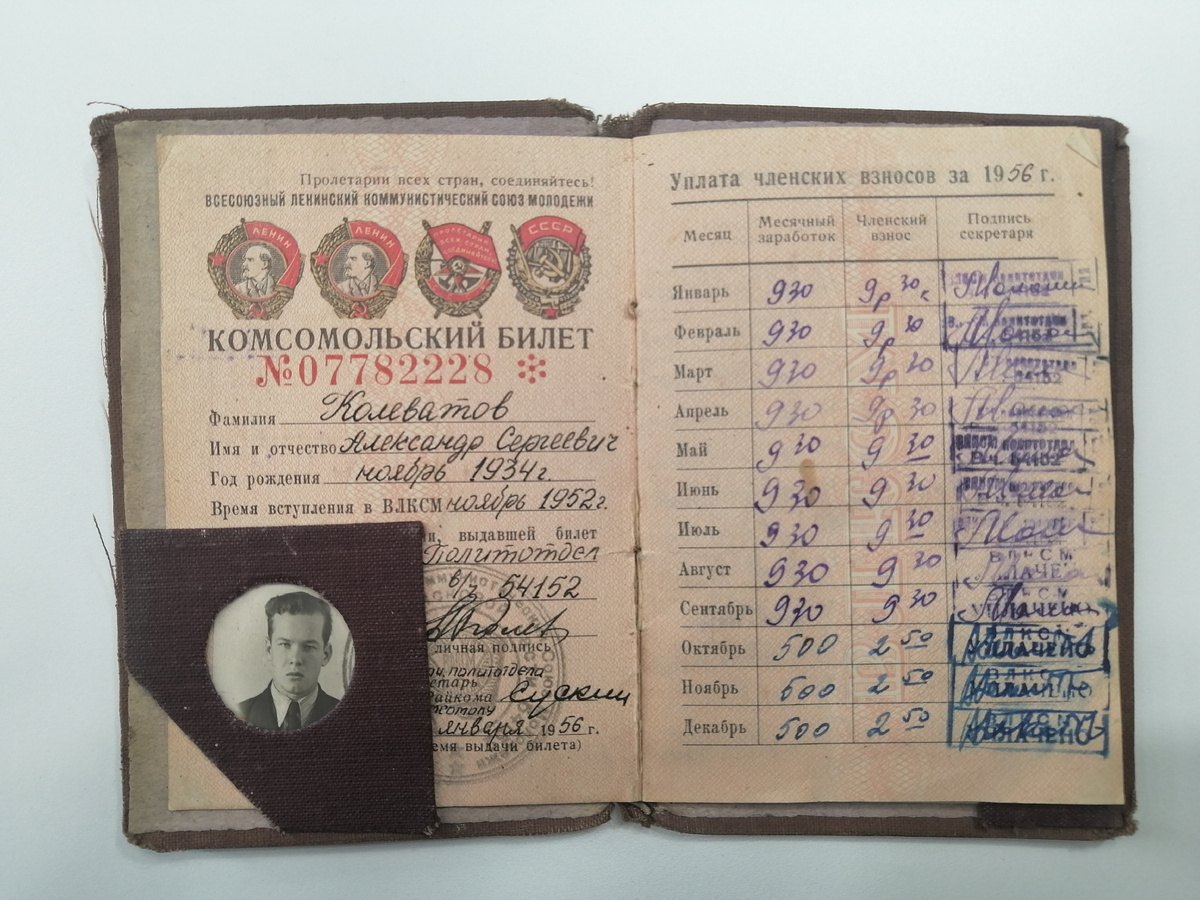 Пролетарии всех стран, соединяйтесь!
ВСЕСОЮЗНЫЙ ЛЕНИНСКИЙ КОММУНИСТИЧЕСКИЙ СОЮЗ МОЛОДЕЖИ
ЛЕНИН ЛЕНИН ПРОЛЕТАРИИ ВСЕХ СТРАН СОЕДИНЯЙТЕСЬ СССР
КОМСОМОЛЬСКИЙ БИЛЕТ
№07782228
Фамилия Колеватов
Имя и отчество Александр Сергеевич
Год рождения ноябрь 1934г.
Время вступления в ВЛКСМ ноябрь 1952г.
и, выдавшей билет
Политотдел
в/ч 54152
личная подпись
политотдела
етарь
айкома
января 1956 г.
емя выдачи билета)
Уплата членских взносов за 1956 г.
Месяц Месячный заработок Членский взнос Подпись секретаря
Январь 930 9р 30к
Февраль 930 9р 30
Март 930 9р 30
Апрель 930 9р 30
Май 930 9 30 политотдел В.ч. 54152
Июнь 930 9 30
Июль 930 9 30
Август 930 9 30 ВЛКСМ
Сентябрь 930 9 30
Октябрь 500 2 50 УПЛАЧЕНО
Ноябрь 500 2 50
Декабрь 500 2 50